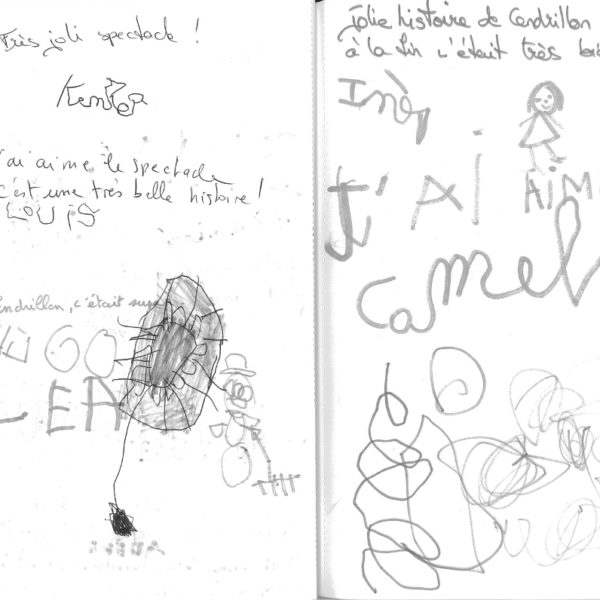 Très joli spectacle !
Kenza
J'ai aimé le spectacle
c'est une très belle histoire !
LOUIS
Cendrillon, c'était super
HUGO
LEA
Jolie histoire de Cendrillon
à la fin c'était très
Inès
J'AI AIM
Camel